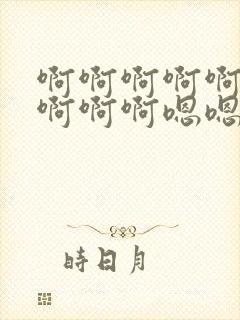 啊啊啊啊啊
啊啊啊嗯嗯
時日月